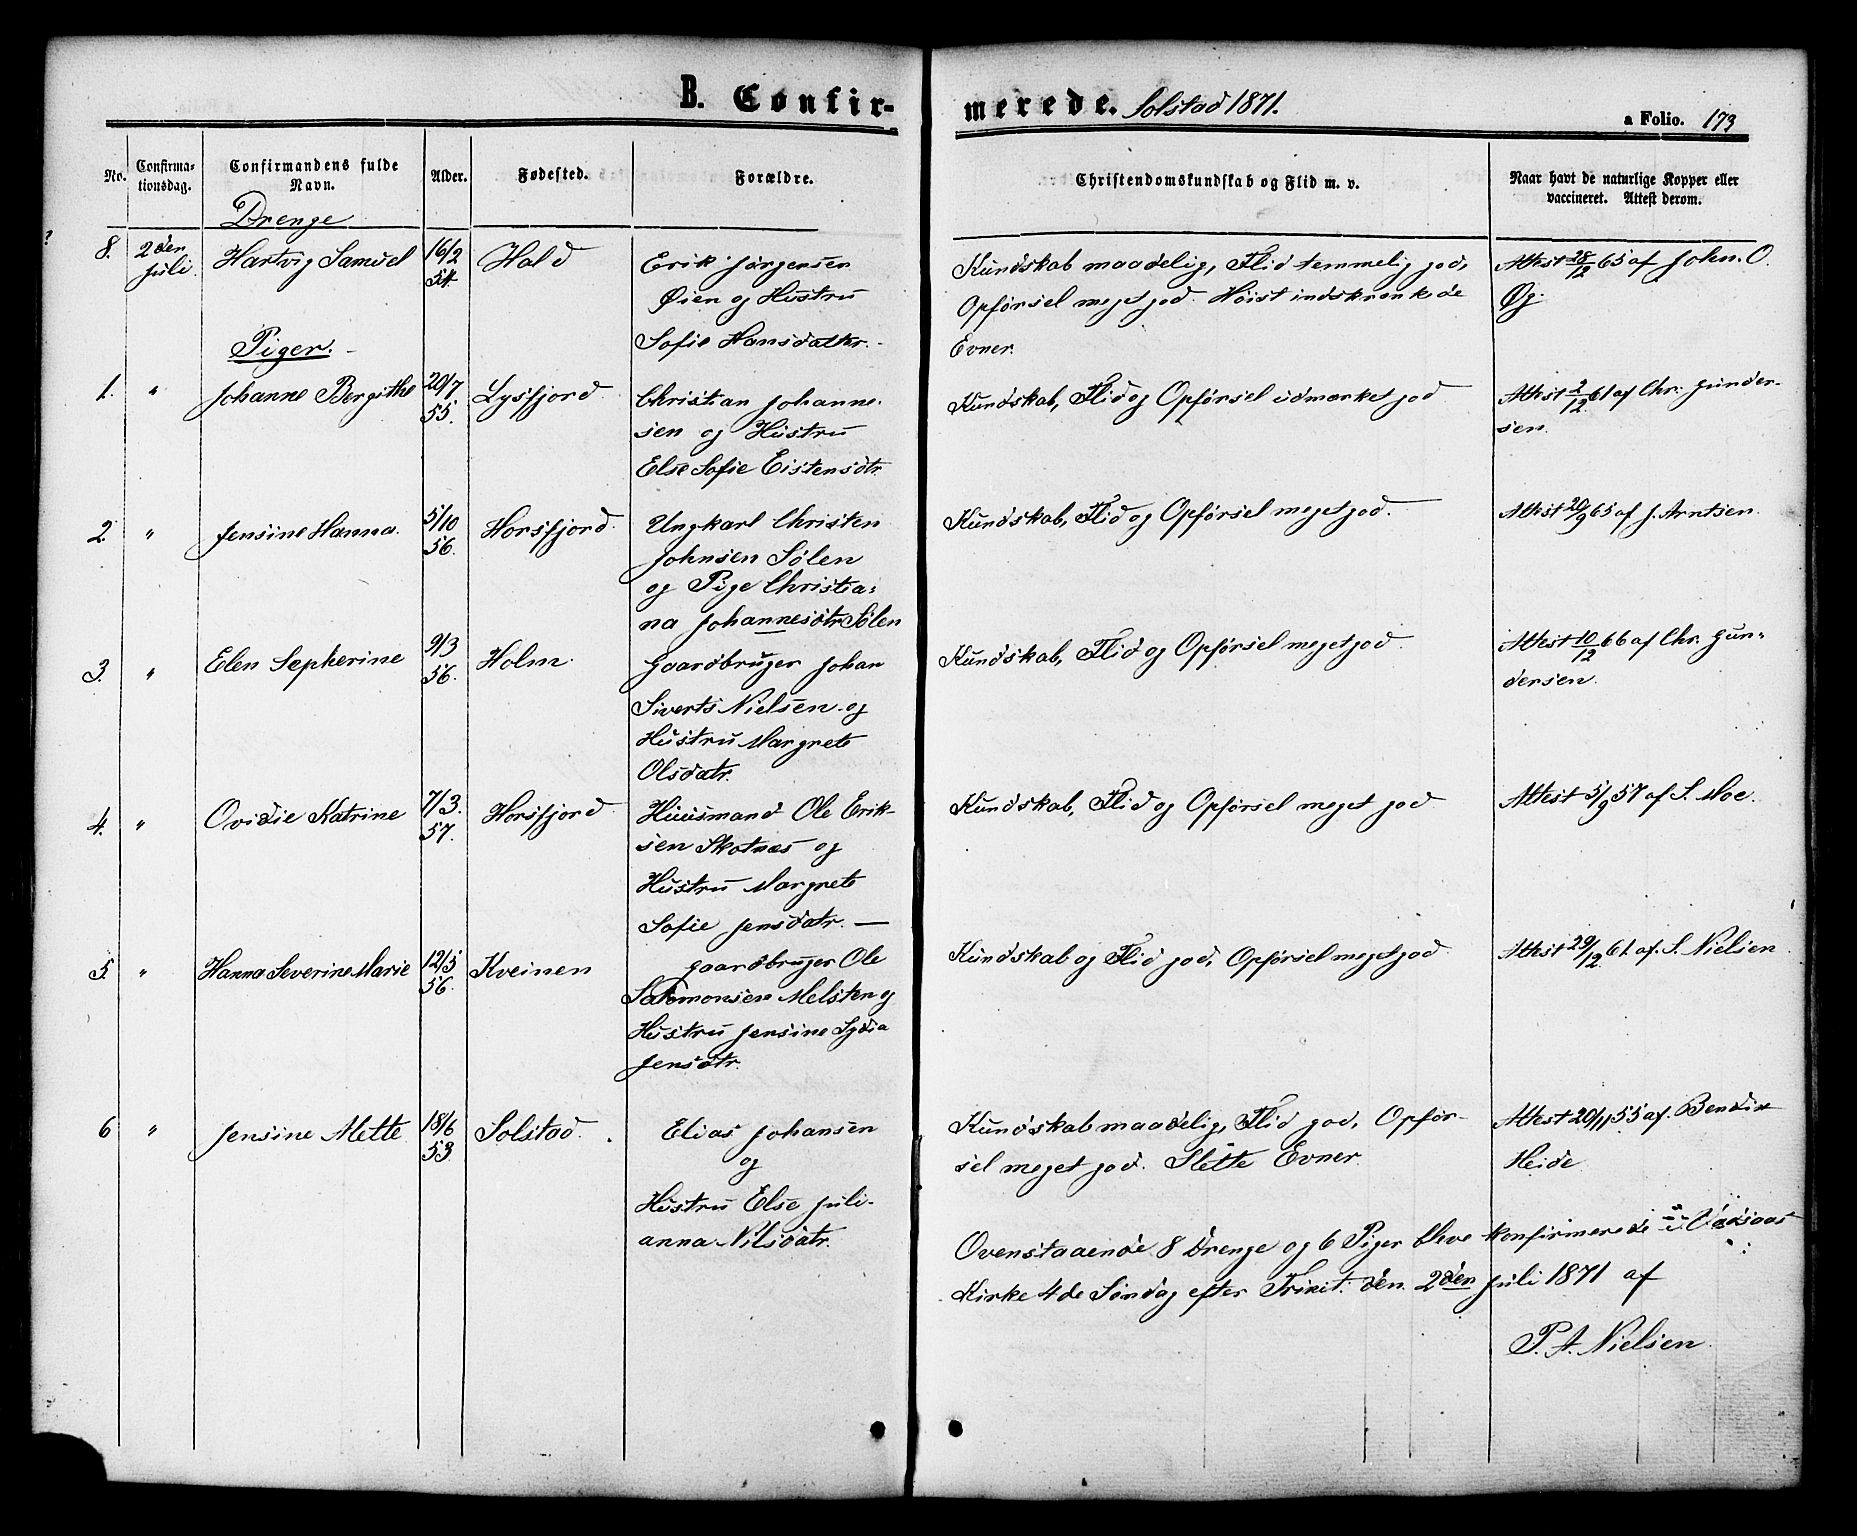 B. Confirmerede. Solstad 1871.
a Folio. 173
No. | Confirmationsdag. | Confirmandens fulde Navn. | Alder. | Fødested. | Forældre. | Christendomskundskab og Flid m. v. | Naar havt de naturlige Kopper eller vaccineret. Attest derom.
Drenge
8. 2den Juli. Hartvig Samuel 16/2 54 Hald
Erik Jørgensen
Øien og Hustru
Sofie Hansdatter.
Kundskab maadelig, Flid temmelig god,
Opførsel meget god. Høist indskrænkede
Evner.
Attest 28/12 65 af John. O.
Øg.
Piger.
1. " Johanne Bergithe 20/7 55. Lysfjord
Christian Johanne-
sen og Hustru
Else Sofie Eistensdtr.
Kundskab, Flid og Opførsel udmærket god
Attest 2/12 61 af Chr. Gunder-
sen.
2. " Jensine Hanna. 5/10 56. Horsfjord.
Ungkarl Christen
Johnsen Sølen
og Pige Christia-
na Johannesdtr Sølen
Kundskab, Flid og Opførsel meget god.
Attest 20/9 65 af J. Arntsen.
3. " Elen Sepherine 9/3 56. Holm.
Gaardbruger Johan
Siverts Nielsen og
Hustru Margrete
Olsdatr.
Kundskab, Flid og Opførsel meget god.
Attest 10/12 66 af Chr. Gun-
dersen.
4. " Ovidie Katrine 7/3. 57. Horsfjord
Huusmand Ole Erik-
sen Skotnæs og
Hustru Margrete
Sofie Jensdatr. —
Kundskab, Flid og Opførsel meget god
Attest 5/9 57 af S. Moe.
5. " Hanna Severine Marie 12/5 56. Kveinen
Gaardbruger Ole
Salomonsen Melsten og
Hustru Jensine Lydia
Jensdtr.
Kundskab og Flid god, Opførsel meget god
Attest 29/12 61. af. S. Nielsen
6 " Jensine Mette 18/6 53 Solstad.
Elias Johansen
og
Hustru Else Juli-
anna Nilsdatr.
Kundskab maadelig, Flid god, Opfør-
sel meget god. Slette Evner.
Attest 20/11 55 af. Bendix
Heide
Ovenstaaende 8 Drenge og 6 Piger bleve konfirmerede i Vadsaas
Kirke 4de Søndag efter Trinit. den 2den Juli 1871 af
P. A. Nielsen